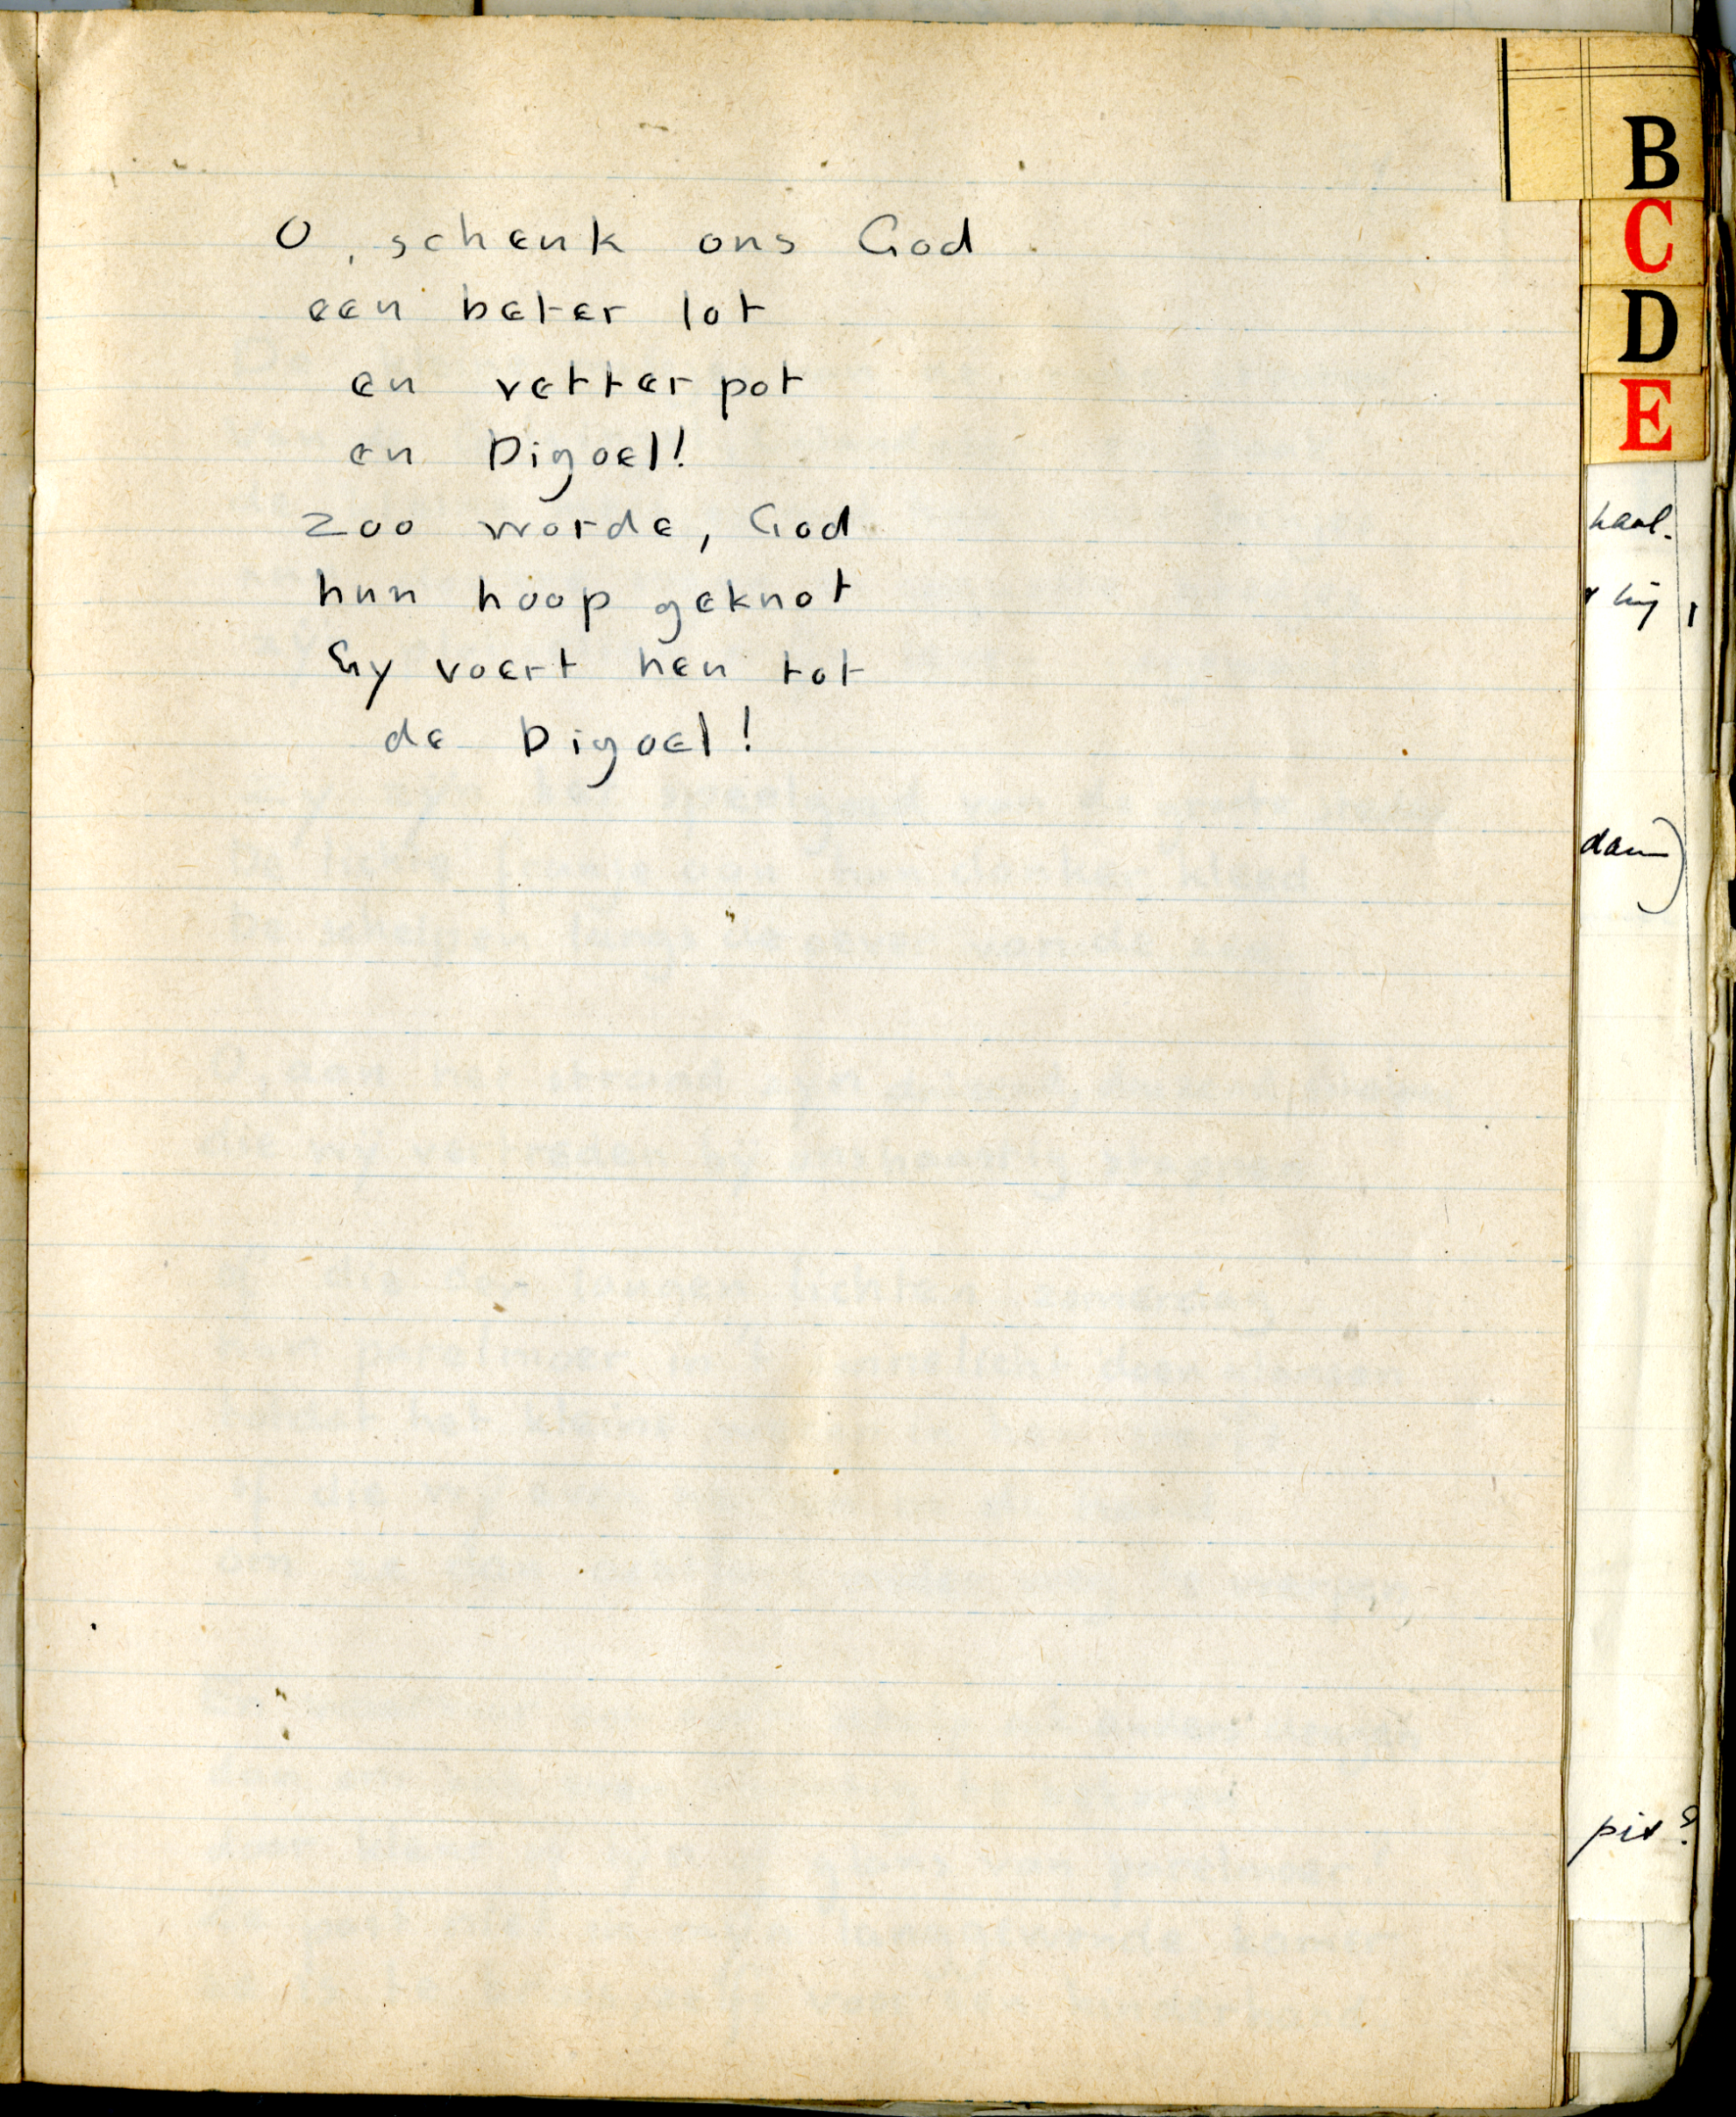 O, schenk ons God
een beter lot
en vetter pot
en Digoel!
zoo worde, God
hun hoop geknot
Gy voert hen tot
de Digoel!
B
C
D
E
haal.
hij,
dan)